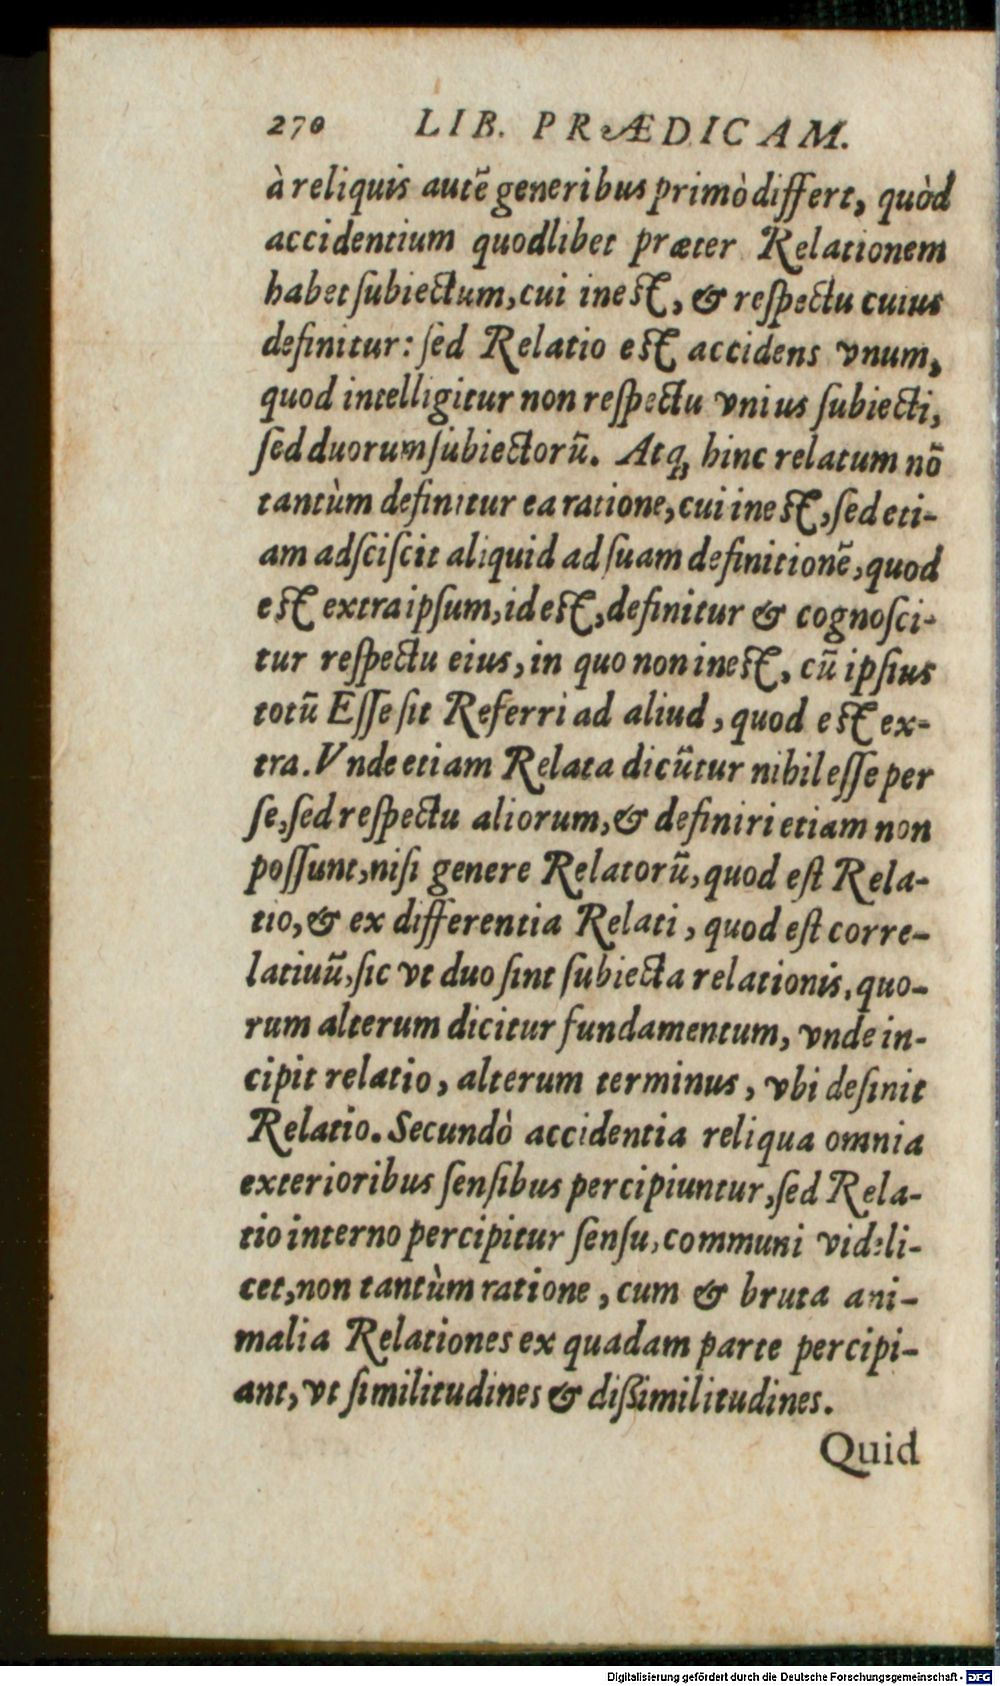 270 LIB. PRÆDICAM.
à reliquis autē generibus primò differt, quòd
accidentium quodlibet præter Relationem
habet ſubiectum, cui ineſt, & reſpectu cuius
definitur: ſed Relatio eſt accidens vnum,
quod intelligitur non reſpectu vnius ſubiecti,
ſed duorum ſubiectorū. Atq; hinc relatum nō
tantùm definitur ea ratione, cui ineſt, ſed eti-
am adſciſcit aliquid ad ſuam definitionē, quod
eſt extra ipſum, id eſt, definitur & cognoſci-
tur reſpectu eius, in quo non ineſt, cū ipſius
totū Eſſe ſit Referri ad aliud, quod eſt ex-
tra. Vnde etiam Relata dicūtur nihil eſſe per
ſe, ſed reſpectu aliorum, & definiri etiam non
poſſunt, niſi genere Relatorū, quod eſt Rela-
tio, & ex differentia Relati, quod eſt corre-
latiuū, ſic vt duo ſint ſubiecta relationis, quo-
rum alterum dicitur fundamentum, vnde in-
cipit relatio, alterum terminus, vbi deſinit
Relatio. Secundò accidentia reliqua omnia
exterioribus ſenſibus percipiuntur, ſed Rela-
tio interno percipitur ſenſu, communi videli-
cet, non tantùm ratione, cum & bruta ani-
malia Relationes ex quadam parte percipi-
ant, vt ſimilitudines & diſſimilitudines.
Quid
Digitalisierung gefördert durch die Deutsche Forschungsgemeinschaft - DFG